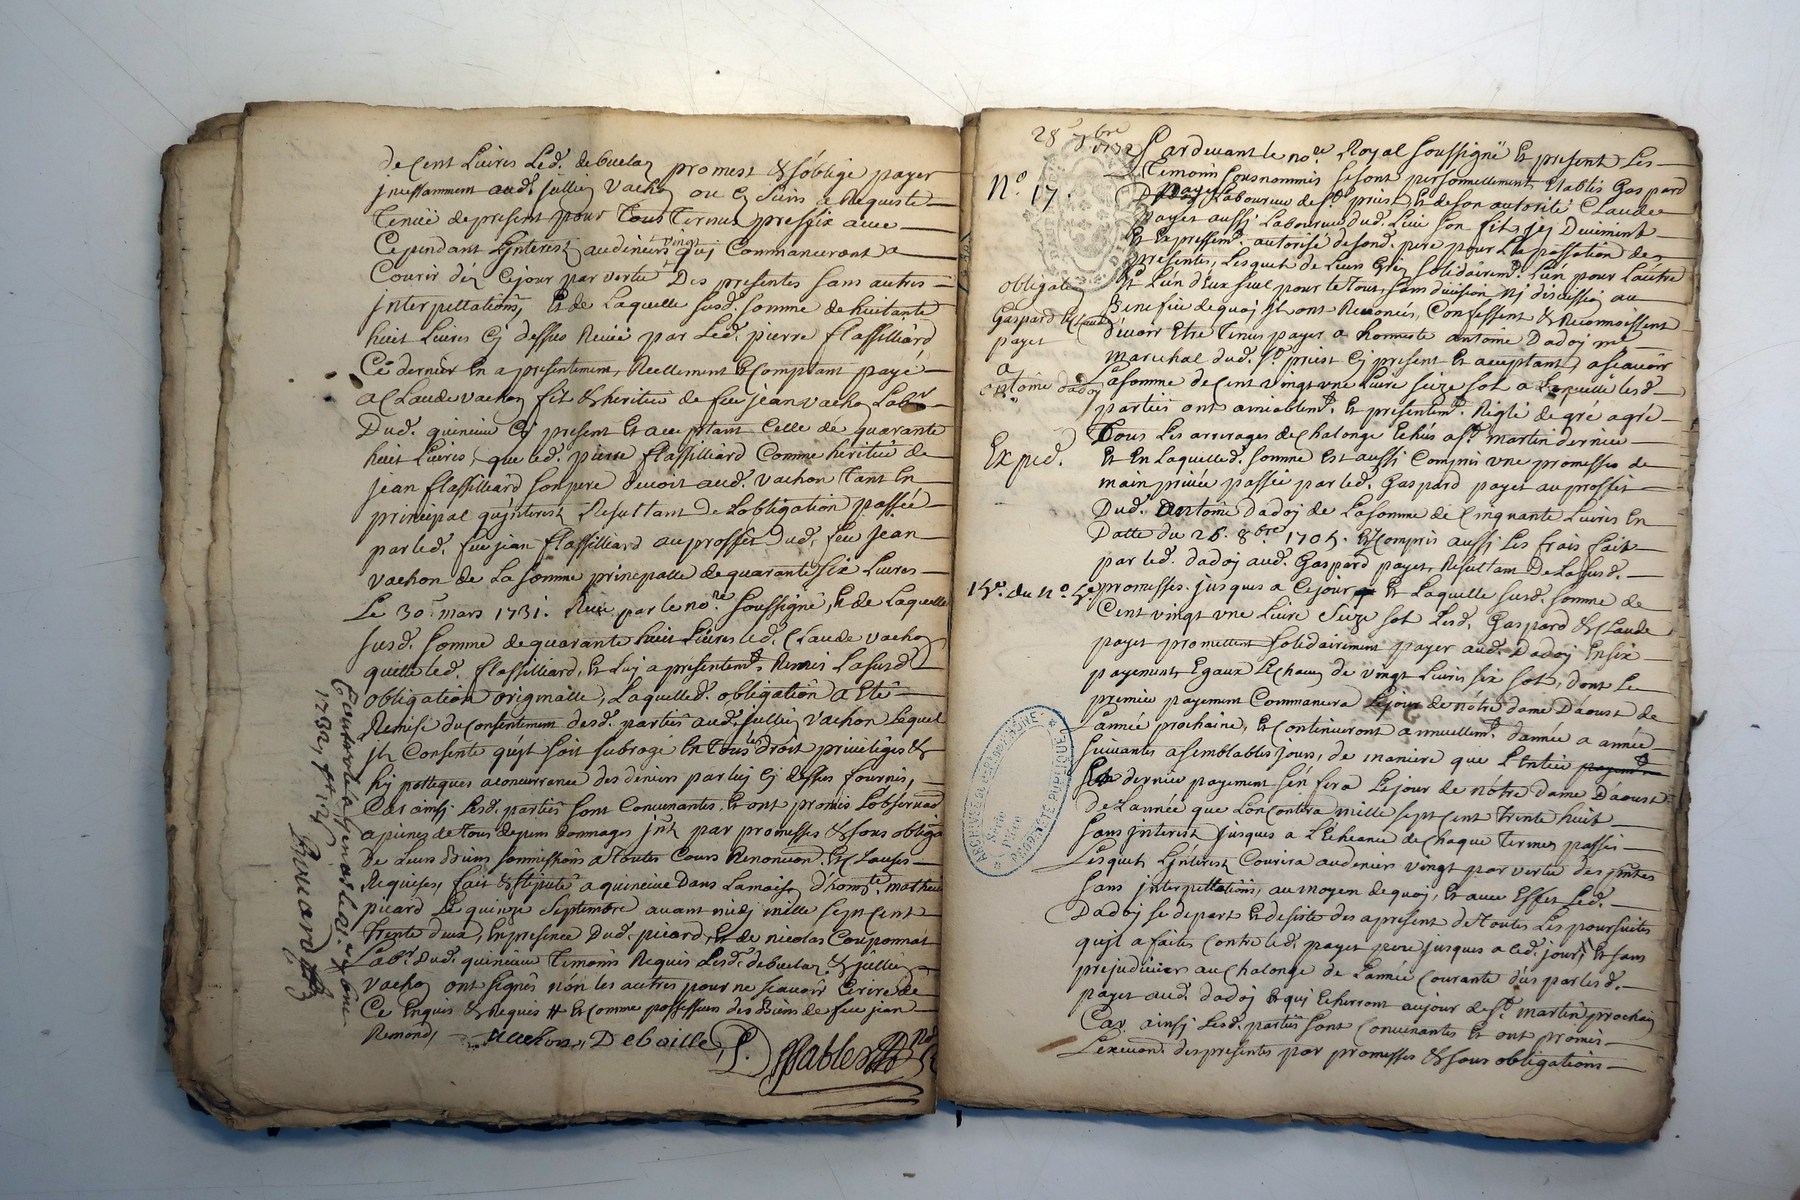 de Cent Livres Led. debuelay promest & s'oblige payer
jncessamment aud. jullien Vachon ou es siens a Requiste
Tenue de present pour Tous Termes preffix avec
Cependant Lynterest au denier vingt qui Commancerent a
Courir dez Cejour par vertu Des presentes sans autres
jnterpellations, Et de Laquelle susd. somme de huitante
huit Livres Cy dessus Receüe par Led. pierre flassilliard
Ce dernier En a presentement, Reellement Et Comptant payé
a Claude vachon fils & heritier de feu jean vachon Lab.r
Dud. quincieu Cy present Et acceptant Celle de quarante
huit Livres, que led. pierre flassilliard Comme heritier de
jean flassilliard son pere devoit aud. vachon Tant En
principal qu'jnterest, Resultant de L'obligation passée
par led. feu jean flassilliard au proffit Dud. feu jean
vachon de La somme principalle de quarante six Livres
Le 30.e mars 1731. Receu par le no.re soussigné, Et de Laquelle
susd. somme de quarante huit Livres led. Claude vachon
quitte led. flassilliard, Et Luy a presentem.t Remis La susd.
obligation originalle, Laquelle d. obligation a Eté
Remise du Consentement desd. parties aud. jullien vachon Lequel
jls Consente qu'jl soit subrogé En Tous Le droit privileges &
hypotteques a concurrance des deniers par luy Cy dessus fournis,
Car ainsy Lesd. parties sont Convenantes, Et ont promis L'observa.on
a peines de tous depens dommages jnt. par promesses & sous obliga.
de Leurs Biens soumissions a Toutes Cours Renonciaon. Et Clauses
Requises, fait & stipulé a quincieu Dans La maison d'honn.te mathieu
picard Le quinze Septembre avant midy mille sept Cent
Trente deux, En presence Dud. picard, Et de nicolas Couponnat
Lab.r Dud. quincieu Temoins Requis Lesd. debuelay & jullien
vachon ont signés non les autres pour ne scavoir Ecrire de
Ce Enquis & Requis # Et Comme possesseur des Biens de feu jean
Remond,
Vachon, Debaille
1732,
28.e 7bre 1732
N.o 17.
obligaton
Gaspard Et Claude
payet
a
antoine dadoy
Exped.
Par devant le no.re Royal soussigné Et present Les
Temoins sousnommés se sont personnellement Etablis Gaspard
payet Laboureur de S.t priest, Et de son autorité Claude
payet aussy Laboureur dud. Lieu son fils jcy Duement
Et Expressem.t autorisé de sond. pere pour La passation des
presentes, Lesquels de Leurs Grez solidairem.t L'un pour L'autre
Et L'un d'eux seul pour Le Tout, sans division ny discussion au
Benefice de quoy jls ont Renoncés, Confessent & Reconnoissent
devoir Etre Tenus payer a honneste antoine Dadoy m.e
marechal dud. S.t priest Cy present Et acceptant, a scavoir
La somme de Cent vingt une Livre seize sols a Laquelle lesd.
parties ont amiablem.t Et presentem.t Reglé de gré a gré
Tous Les arrerages de Chalonge Echûs a S.t martin dernier
Et En Laquelle d. somme est aussi Compris une promesse de
main privée passée par led. Gaspard payet au proffit
Dud. antoine Dadoy de La somme de Cinquante Livres En
Datte du 26. 8bre 1705. Et y Compris aussi Les frais fait
par led. dadoy aud. Gaspard payet, Resultant De La susd.
promesse, jusques a Cejour Et Laquelle susd. somme de
Cent vingt une Livre seize sols Lesd. Gaspard & Claude
payet promettent solidairement payer aud. Dadoy En six
payements Egaux Et chacun de vingt Livres six sols, dont Le
premier payement Commancera Lejour de nôtre dame Daoust de
L'année prochaine, Et continueront annuellem.t d'année a année
suivantes a semblables jours, de maniere que L'Entier payem.t
dernier payement s'en fera Lejour de nôtre dame D'aoust
de L'année que L'on contera mille sept cent trente huit
sans jnterest jusques a L'Echeance de chaque Termes passés
Lesquels jnterest Courira au denier vingt par vertu des presentes
sans jnterpellations, au moyen de quoy, Et avec Effet Led.
Dadoy se depart Et desiste des a present de Toutes Les poursuites
qu'jl a faites Contre led. payet pere jusques a ced. jour, Et sans
prejudicier au Chalonge de L'année Courante dûs par les d.
payet aud. dadoy Et qui Echerront au jour de S.t martin prochain
Car ainsy Lesd. parties sont Convenantes Et ont promis
L'execuon. des presentes par promesses & sous obligations
ARCHIVES DU DEPARTEMENT DE L'ISERE
Série
Pièce
PROPRIETE PUBLIQUE